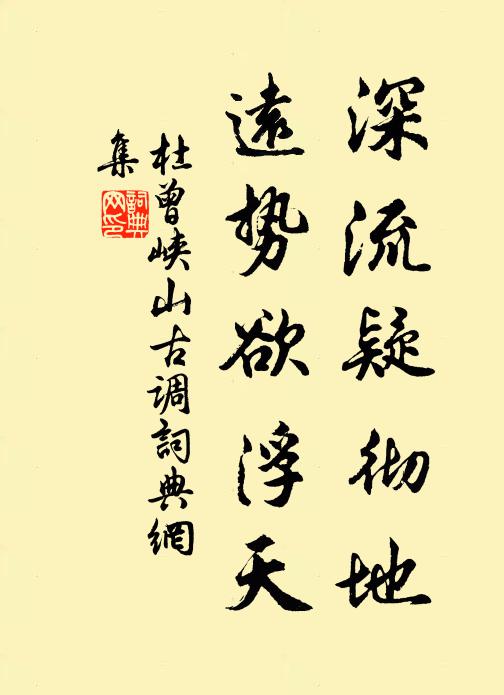 深流疑彻地
遠势欲浮天
杜曾峡山古调詞典網
集
詞典
网印